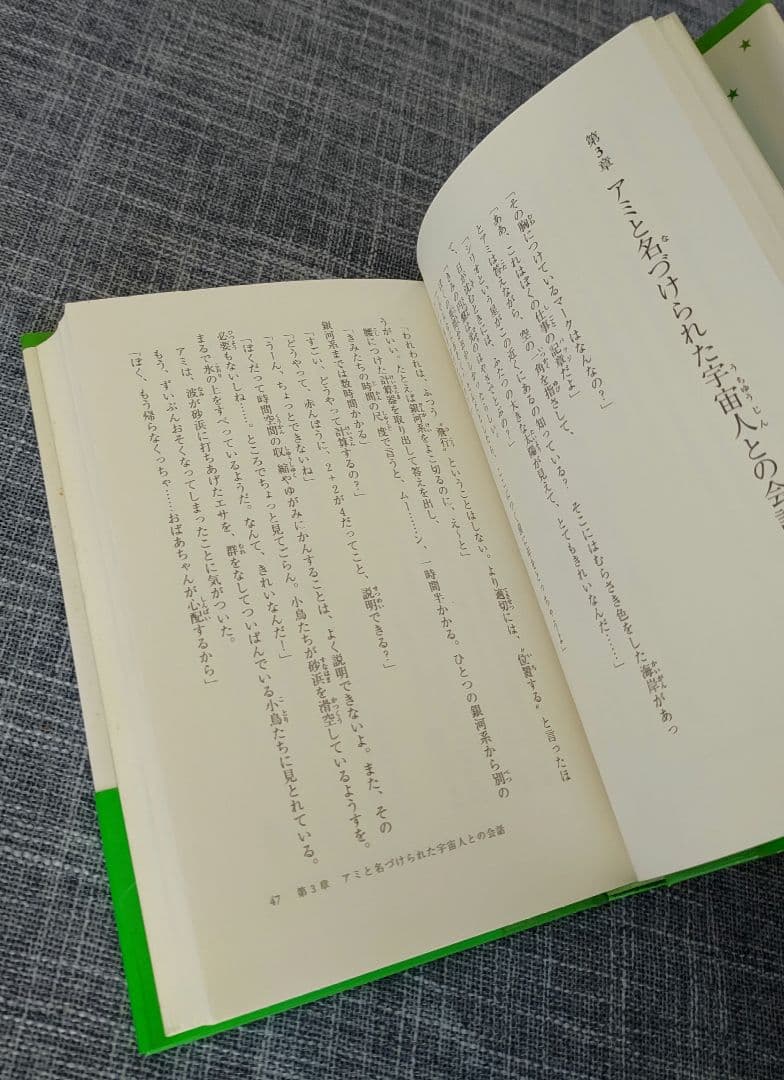 第3章 アミと名づけられた宇宙人との会
「その胸につけているマークはなんなの？」
「ああ、これはぼくの仕事の記章だよ」
とアミは答えながら、空の一角を指さして、
「シリオという星がこの近くにあるの知っている？ そこにはむらさき色をした海岸があっ
て、日が沈むときには、ふたつの大きな太陽が見えて、とてもきれいなんだ……」
「われわれは、ふつう〝飛行〟ということはしない。より適切には、〝位置する〟と言ったほ
うがいい。たとえば銀河系をよこ切るのに、え〜と」
腰につけた計算器を取り出して答えを出し、
「きみたちの時間の尺度で言うと、ムー……ン、一時間半かかる。ひとつの銀河系から別の
銀河系までは数時間かかる」
「すごい、どうやって計算するの？」
「どうやって、赤んぼうに、2+2が4だってこと、説明できる？」
「うーん、ちょっとできないね」
「ぼくだって時間空間の収縮やゆがみにかんすることは、よく説明できないよ。また、その
必要もないしね……。ところでちょっと見てごらん。小鳥たちが砂浜を滑空しているようすを。
まるで氷の上をすべっているようだ。なんて、きれいなんだ！」
アミは、波が砂浜に打ちあげたエサを、群をなしてついばんでいる小鳥たちに見とれている。
もう、ずいぶんおそくなってしまったことに気がついた。
「ぼく、もう帰らなくっちゃ……おばあちゃんが心配するから」
47 第3章 アミと名づけられた宇宙人との会話